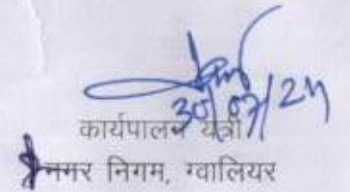 30/07/24
कार्यपालन यंत्री
नगर निगम, ग्वालियर